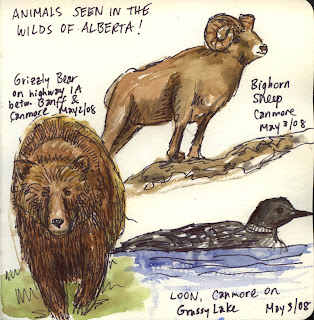 ANIMALS SEEN IN THE
WILDS OF ALBERTA!
Grizzly Bear
on highway 1A
betw Banff &
Canmore May 2/08
Bighorn
Sheep
Canmore
May 3/08
LOON, Canmore on
Grassy Lake May 3/08